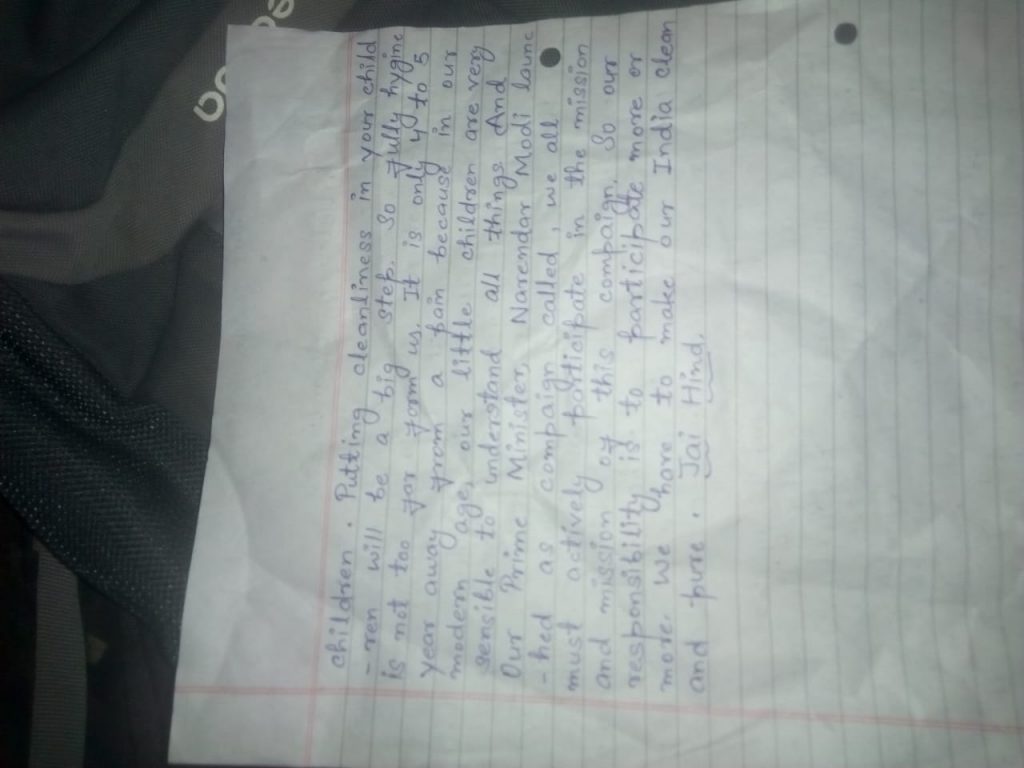 children. Putting cleanliness in your child
-ren will be a big step. So fully hygine
is not too far from us. It is only 4 to 5
year away from a pain because in our
modern age, our little children are very
sensible to understand all things. And
Our Prime Minister, Narendar Modi launc
-hed as compaign called, we all
must actively participate in the mission
and mission of this compaign. So our
responsibility is to participate more or
more. we have to make our India clean
and pure. Jai Hind.